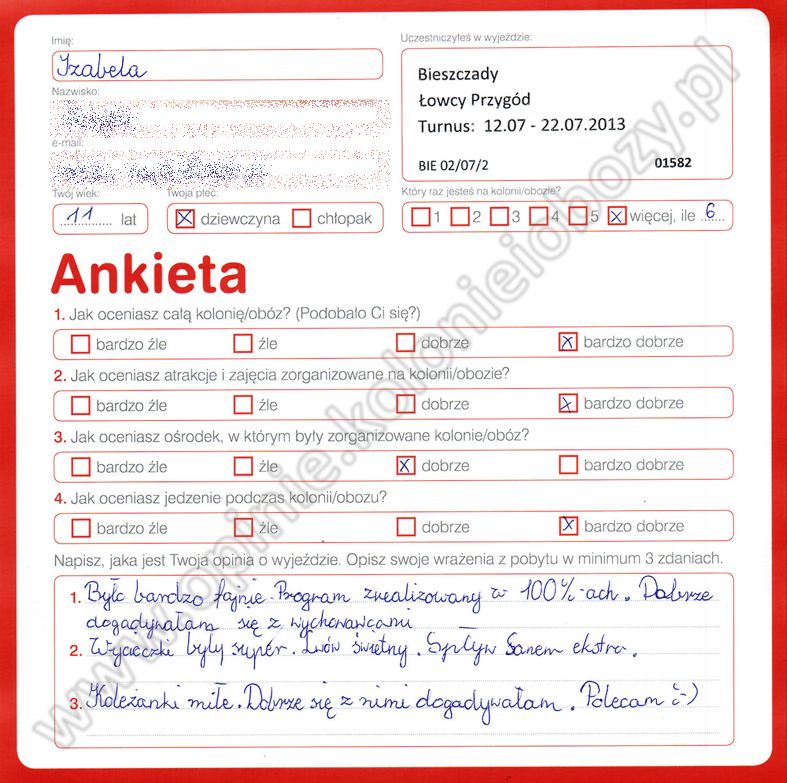 Imię:
Uczestniczyłeś w wyjeździe:
Izabela
Bieszczady
Łowcy Przygód
Turnus: 12.07 - 22.07.2013
BIE 02/07/2 01582
Nazwisko:
e-mail:
Twój wiek: Twoja płeć: Który raz jesteś na kolonii/obozie?
11 lat dziewczyna chłopak 1 2 3 4 5 więcej, ile 6
Ankieta
1. Jak oceniasz całą kolonię/obóz? (Podobało Ci się?)
bardzo źle źle dobrze bardzo dobrze
2. Jak oceniasz atrakcje i zajęcia zorganizowane na kolonii/obozie?
bardzo źle źle dobrze bardzo dobrze
3. Jak oceniasz ośrodek, w którym były zorganizowane kolonie/obóz?
bardzo źle źle dobrze bardzo dobrze
4. Jak oceniasz jedzenie podczas kolonii/obozu?
bardzo źle źle dobrze bardzo dobrze
Napisz, jaka jest Twoja opinia o wyjeździe. Opisz swoje wrażenia z pobytu w minimum 3 zdaniach.
1. Było bardzo fajnie. Program zrealizowany w 100%-ach. Dobrze
dogadywałam się z wychowawcami
2. Wycieczki były super. Lwów świetny. Spływ Sanem ekstra.
3. Koleżanki miłe. Dobrze się z nimi dogadywałam. Polecam :-)
www.opinie.kolonieiobozy.pl